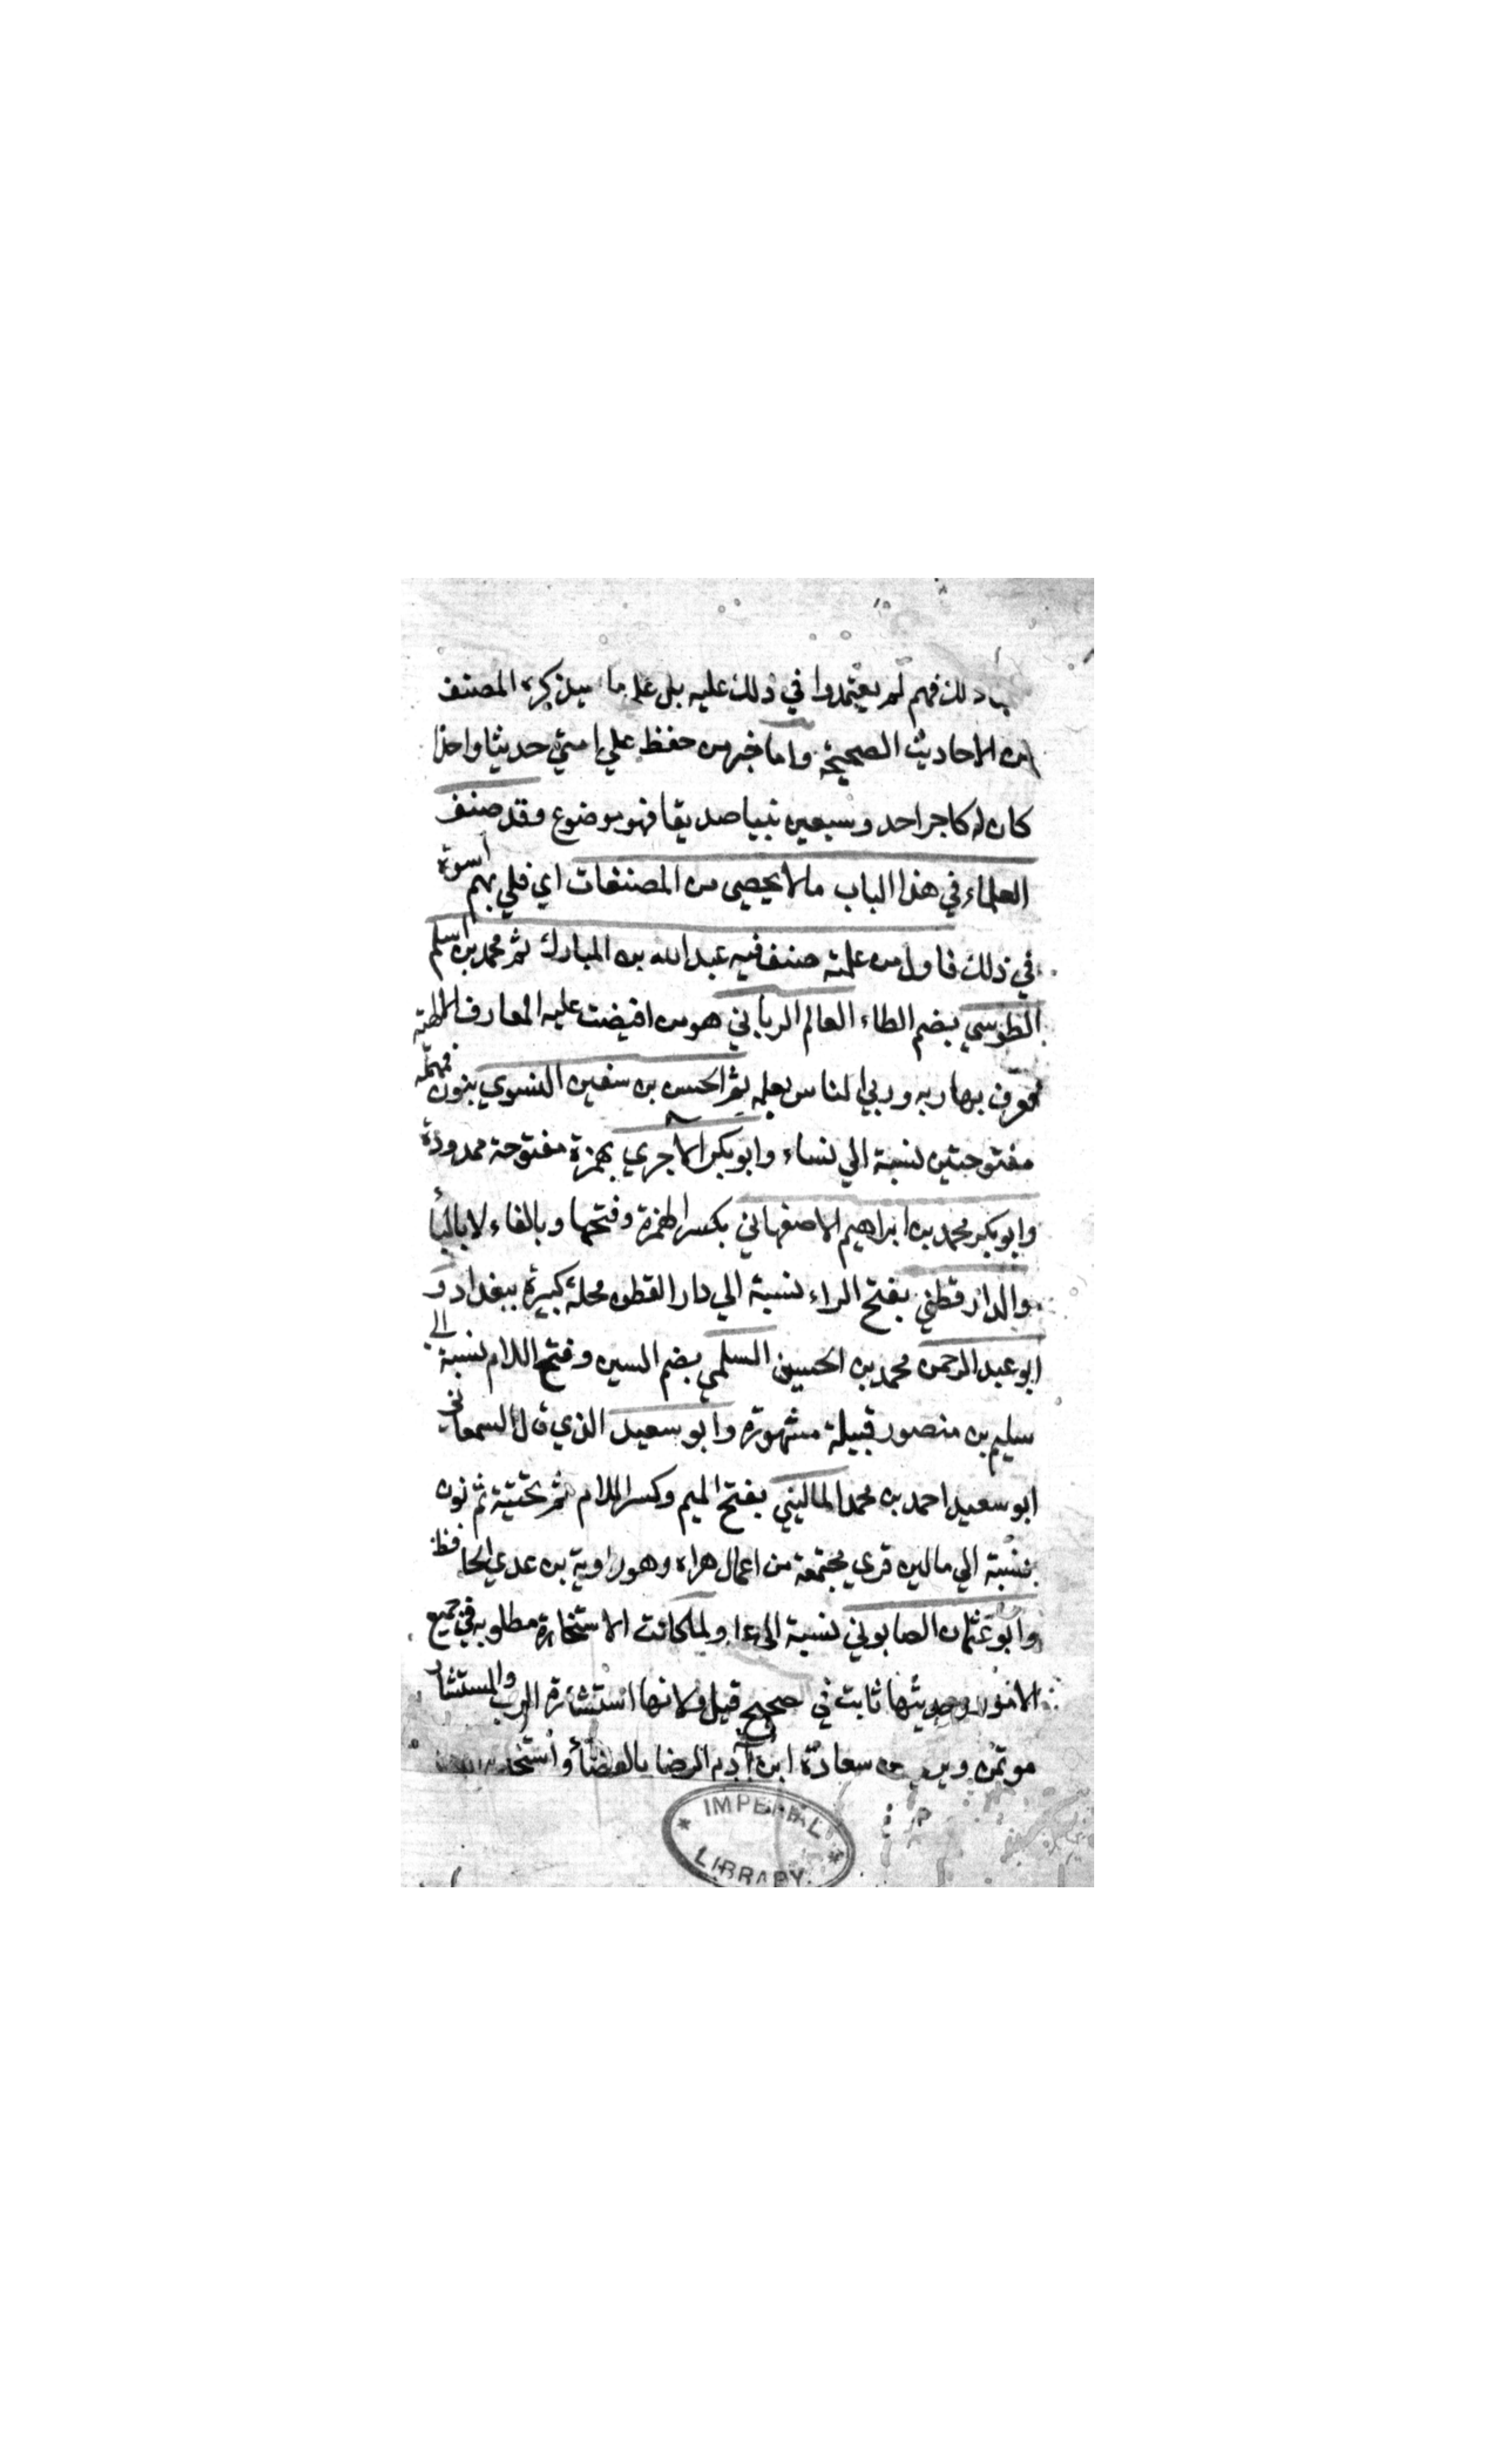 ذلك فهم لم يعتمدوا في ذلك عليه بل على ما سيذكره المصنف
من الاحاديث الصحيحة واما خبر من حفظ علي امتي حديثا واحدا
كان له كاجر احد وسبعين نبيا صديقا فهو موضوع وقد صنف
العلماء في هذا الباب ما لا يحصي من المصنفات اي فلي بهم اسوة
في ذلك فاول من علمته صنف فيه عبد الله بن المبارك ثم محمد بن اسلم
الطوسي بضم الطاء العالم الرباني هو من افيضت عليه المعارف الالهية
فعرف بها ربه وربي الناس بعلمه ثم الحسن بن سفين النسوي بنون فمهملة
مفتوحتين نسبة الي نساء وابو بكر الآجري بهمزة مفتوحة ممدودة
وابو بكر محمد بن ابراهيم الاصفهاني بكسر الهمزة وفتحها وبالفاء لا بالبأ
والدارقطني بفتح الراء نسبة الي دار القطن محلة كبيرة ببغداد و
ابو عبد الرحمن محمد بن الحسين السلمي بضم السين وفتح اللام نسبة الي
سليم بن منصور قبيلة مشهورة وابو سعيد الذي قال السمعاني
ابو سعيد احمد بن محمد الماليني بفتح الميم وكسر اللام ثم تحتية ثم نون
نسبة الي مالين قري مجتمعة من اعمال هراه وهو راوية بن عدي الحافظ
وابو عثمان الصابوني نسبة الي ولما كانت الاستخارة مطلوبة في جميع
الامور وحديثها ثابت في صحيح قيل ولانها استشارة الرب والمستشار
موتمن من سعادة ابن آدم الرضا بالقضأ
IMPERIAL LIBRARY